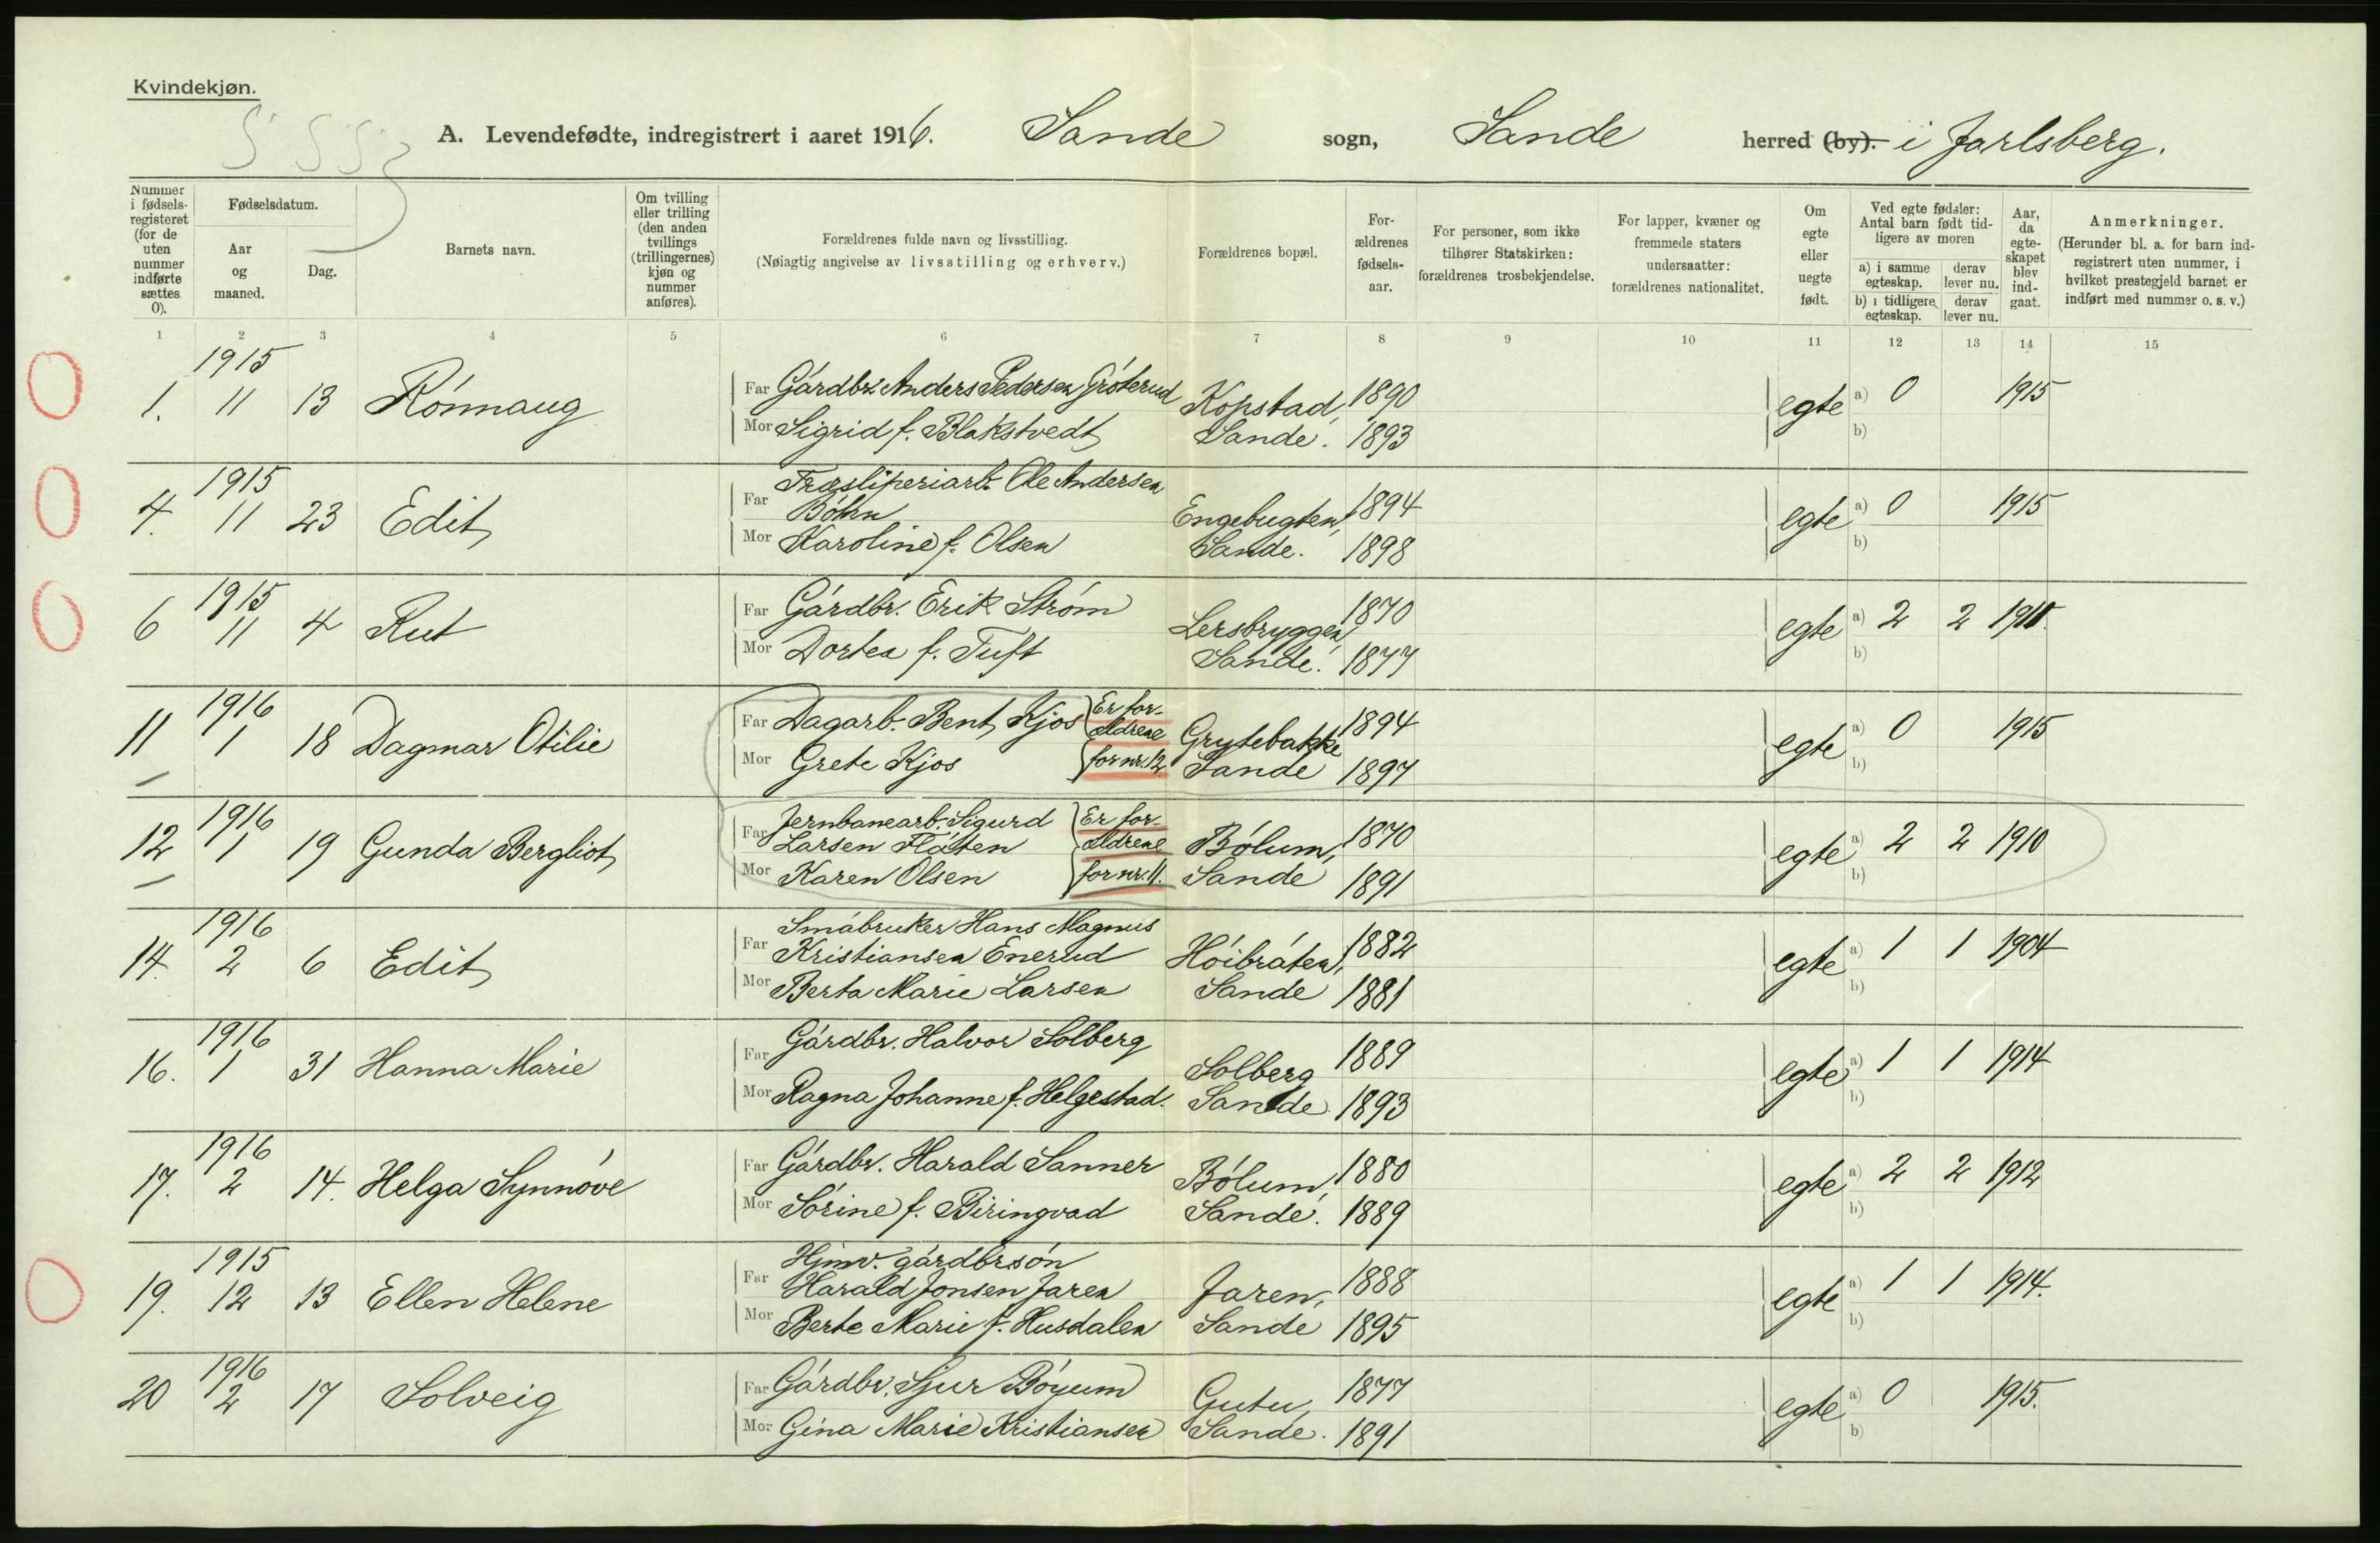 Kvindekjøn.
A. Levendefødte, indregistrert i aaret 1916. Sande sogn, Sande herred (by). i Jarlsberg.
Nummer i fødselsregisteret (for de uten nummer indførte sættes 0).
Fødselsdatum.
Aar og maaned.
Dag.
Barnets navn.
Om tvilling eller trilling (den anden tvillings (trillingernes) kjøn og nummer anføres).
Forældrenes fulde navn og livsstilling.
(Nøiagtig angivelse av livsstilling og erhverv.)
Forældrenes bopæl.
Forældrenes fødselsaar.
For personer, som ikke tilhører Statskirken: forældrenes trosbekjendelse.
For lapper, kvæner og fremmede staters undersaatter: forældrenes nationalitet.
Om egte eller uegte født.
Ved egte fødsler: Antal barn født tidligere av moren
a) i samme egteskap. derav lever nu.
b) i tidligere egteskap. derav lever nu.
Aar, da egteskapet blev indgaat.
Anmerkninger.
(Herunder bl. a. for barn indregistrert uten nummer, i hvilket prestegjeld barnet er indført med nummer o. s. v.)
1 2 3 4 5 6 7 8 9 10 11 12 13 14 15
1915
1. 11 13 Rónnaug
Far Gárdbr. Anders Pedersen Gróterud Kopstad, 1890
Mor Sigrid f. Blakstvedt Sande. 1893
egte a) 0 1915
b)
1915
4. 11 23 Edit
Far Træsliperiarb. Ole Andersen
Bóhn Engebugten, 1894
Mor Karoline f. Olsen Sande. 1898
egte a) 0 1915
b)
1915
6 11 4 Rut
Far Gárdbr. Erik Stróm Lersbryggen, 1870
Mor Dortea f. Tuft Sande. 1877
egte a) 2 2
b)
1916
11 1 18 Dagmar Otilie
Far Dagarb. Bent Kjos Er forældrene for nr. 12 Grytebakke 1894
Mor Grete Kjos Sande 1897
egte a) 0 1915
b)
1916
12 1 19 Gunda Bergliot
Far Jernbanearb. Sigurd
Larsen Fláten Er forældrene for nr. 11. Bólum, 1870
Mor Karen Olsen Sande 1891
egte a) 2 2 1910
b)
1916
14. 2 6 Edit
Far Smábruker Hans Magnus
Kristiansen Enerud Hóibráten, 1882
Mor Berta Marie Larsen Sande 1881
egte a) 1 1 1904
b)
1916
16. 1 31 Hanna Marie
Far Gárdbr. Halvor Solberg Solberg 1889
Mor Ragna Johanne f. Helgestad. Sande. 1893
egte a) 1 1 1914
b)
1916
17. 2 14. Helga Synnóve
Far Gárdbr. Harald Sanner Bólum, 1880
Mor Sórine f. Biringvad Sande. 1889
egte a) 2 2 1912
b)
1915
19. 12 13 Ellen Helene
Far Hjmv. gárdbrsón
Harald Jonsen Jaren Jaren, 1888
Mor Berte Marie f. Husdalen Sande 1895
egte a) 1 1 1914.
b)
1916
20 2 17 Solveig
Far Gárdbr. Sjur Bóyum Gutu, 1877
Mor Gina Marie Kristiansen Sande. 1891
egte a) 0 1915.
b)